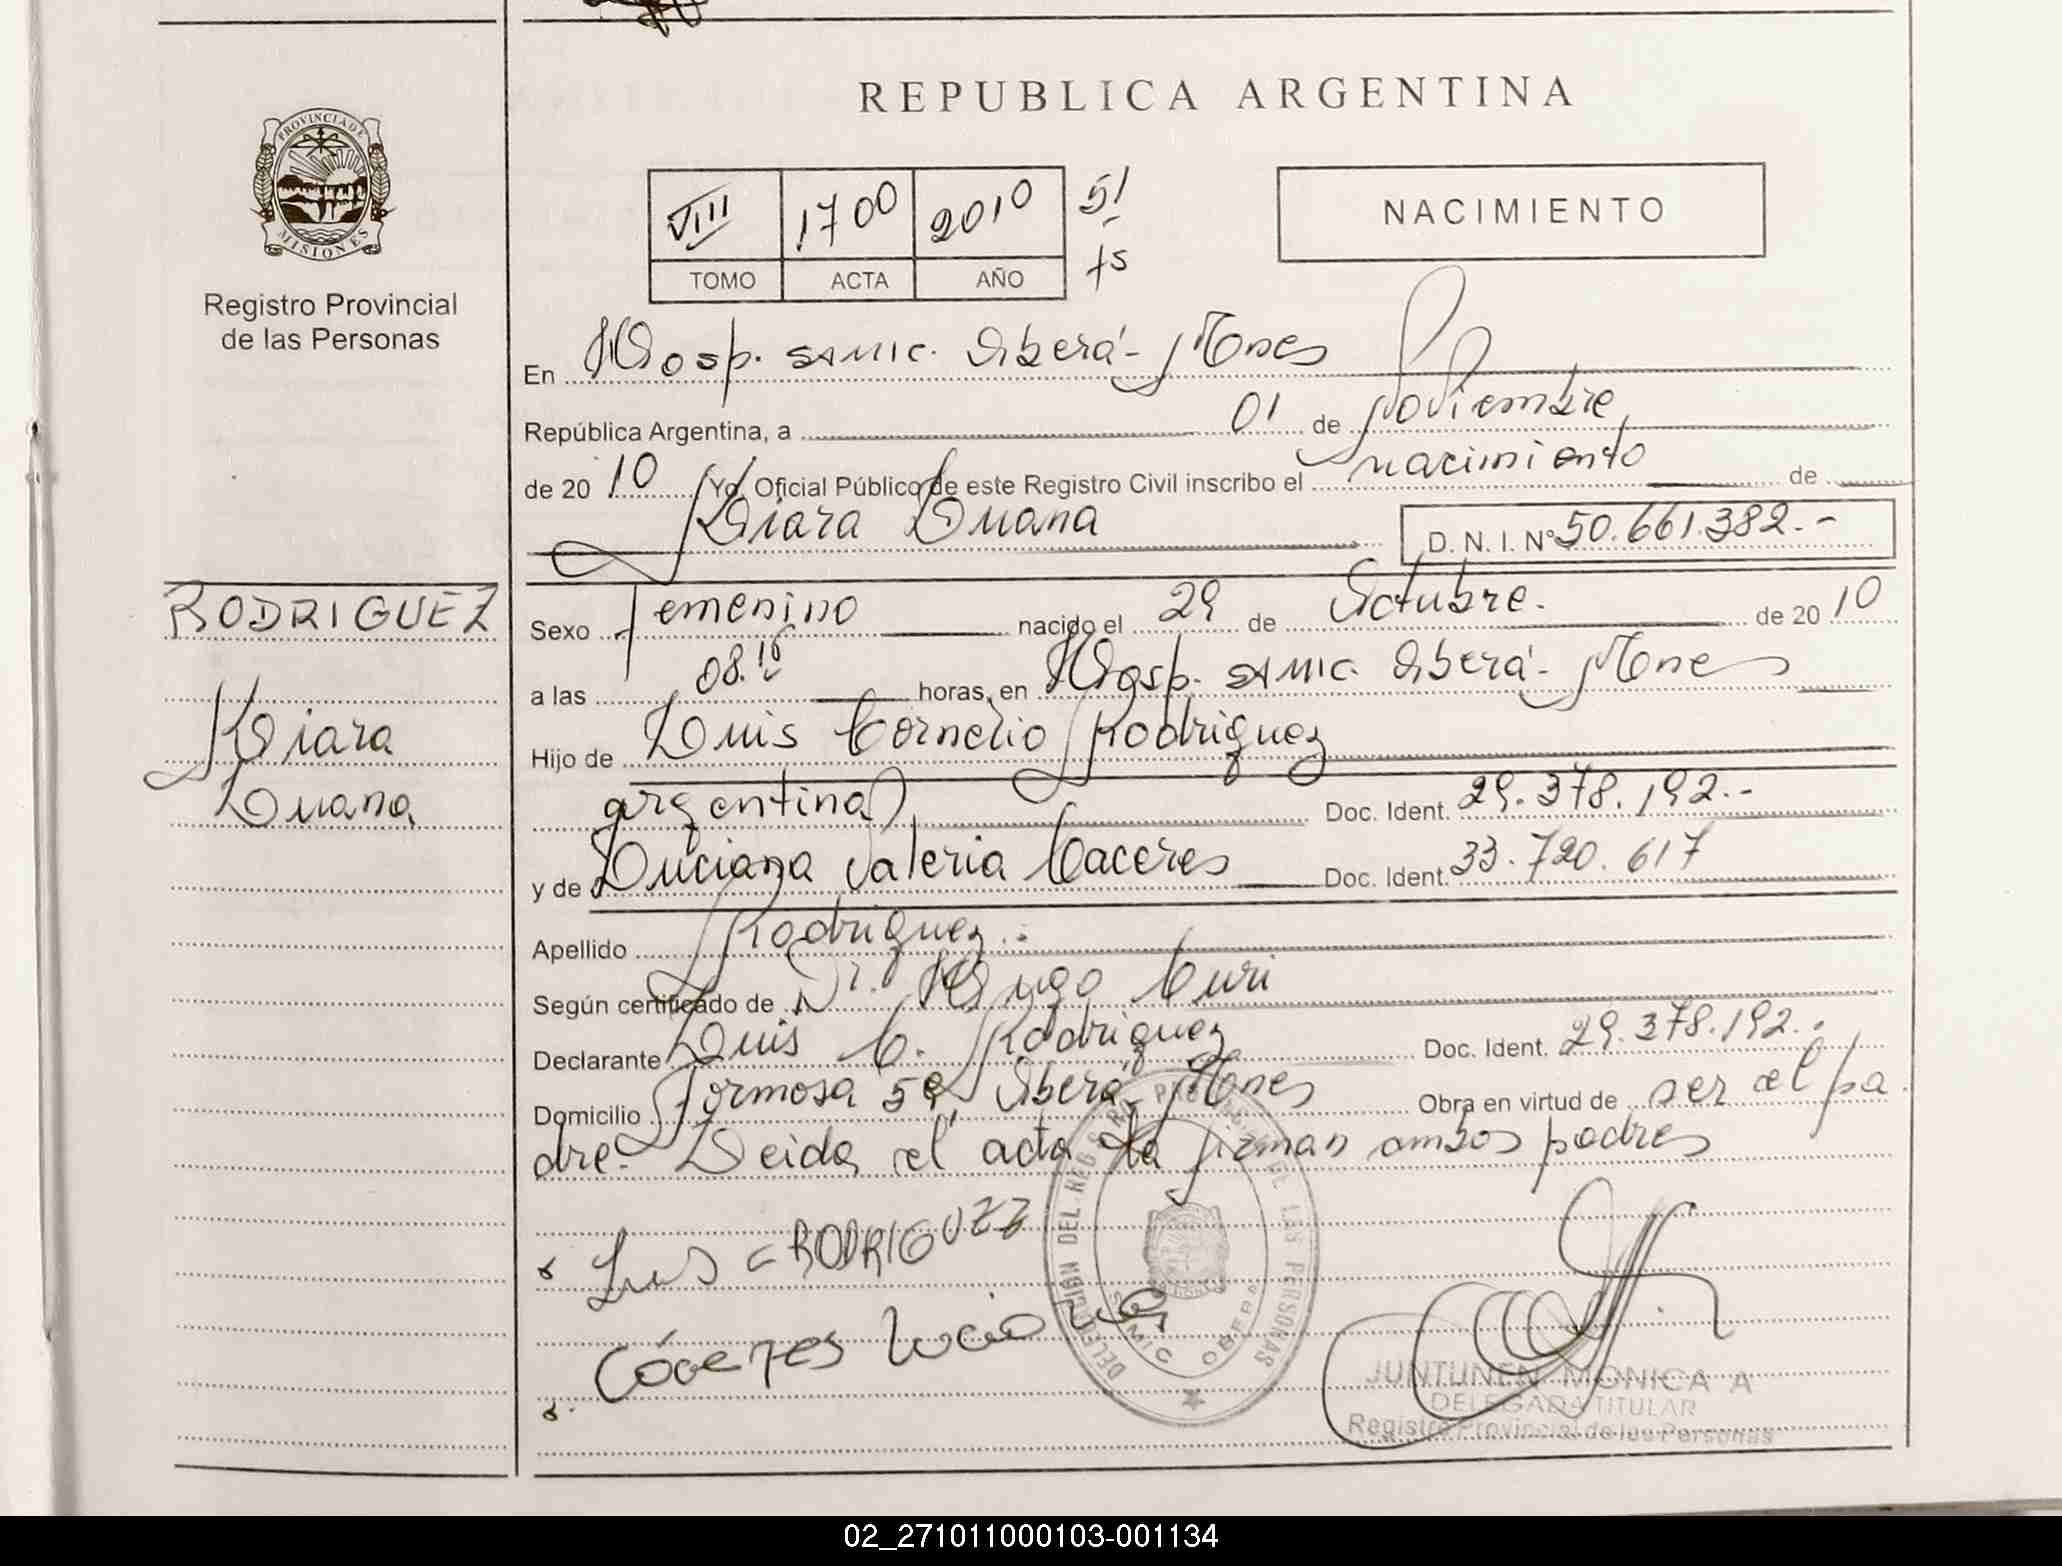 REPUBLICA ARGENTINA
PROVINCIA DE
MISIONES
Registro Provincial
de las Personas
VIII 1700 2010 51
TOMO ACTA AÑO fs
NACIMIENTO
En Hosp. SAMIC. Oberá - Mnes
República Argentina, a 01 de Noviembre
de 20 10 Yo, Oficial Público de este Registro Civil inscribo el nacimiento de
Kiara Luana D. N. I. Nº 50.661.382.-
RODRIGUEZ
Kiara
Luana
Sexo femenino nacido el 29 de Octubre. de 20 10
a las 08.15 horas, en Hosp. SAMIC. Oberá - Mnes
Hijo de Luis Cornelio Rodriguez
argentina Doc. Ident. 29.378.192.-
y de Luciana Valeria Caceres Doc. Ident. 33.720.617
Apellido Rodriguez.-
Según certificado de Dr. Hugo Curi
Declarante Luis C. Rodriguez Doc. Ident. 29.378.192.-
Domicilio Formosa 59 Oberá - Mnes Obra en virtud de ser el pa
dre. Leida el acta la firman ambos padres
Luis C RODRIGUEZ
Cáceres Luciana
DELEGACION DEL REG. PROVINCIAL DE LAS PERSONAS
SAMIC OBERA
JUNTUNEN MONICA A
DELEGADA TITULAR
Registro Provincial de las Personas
02_271011000103-001134